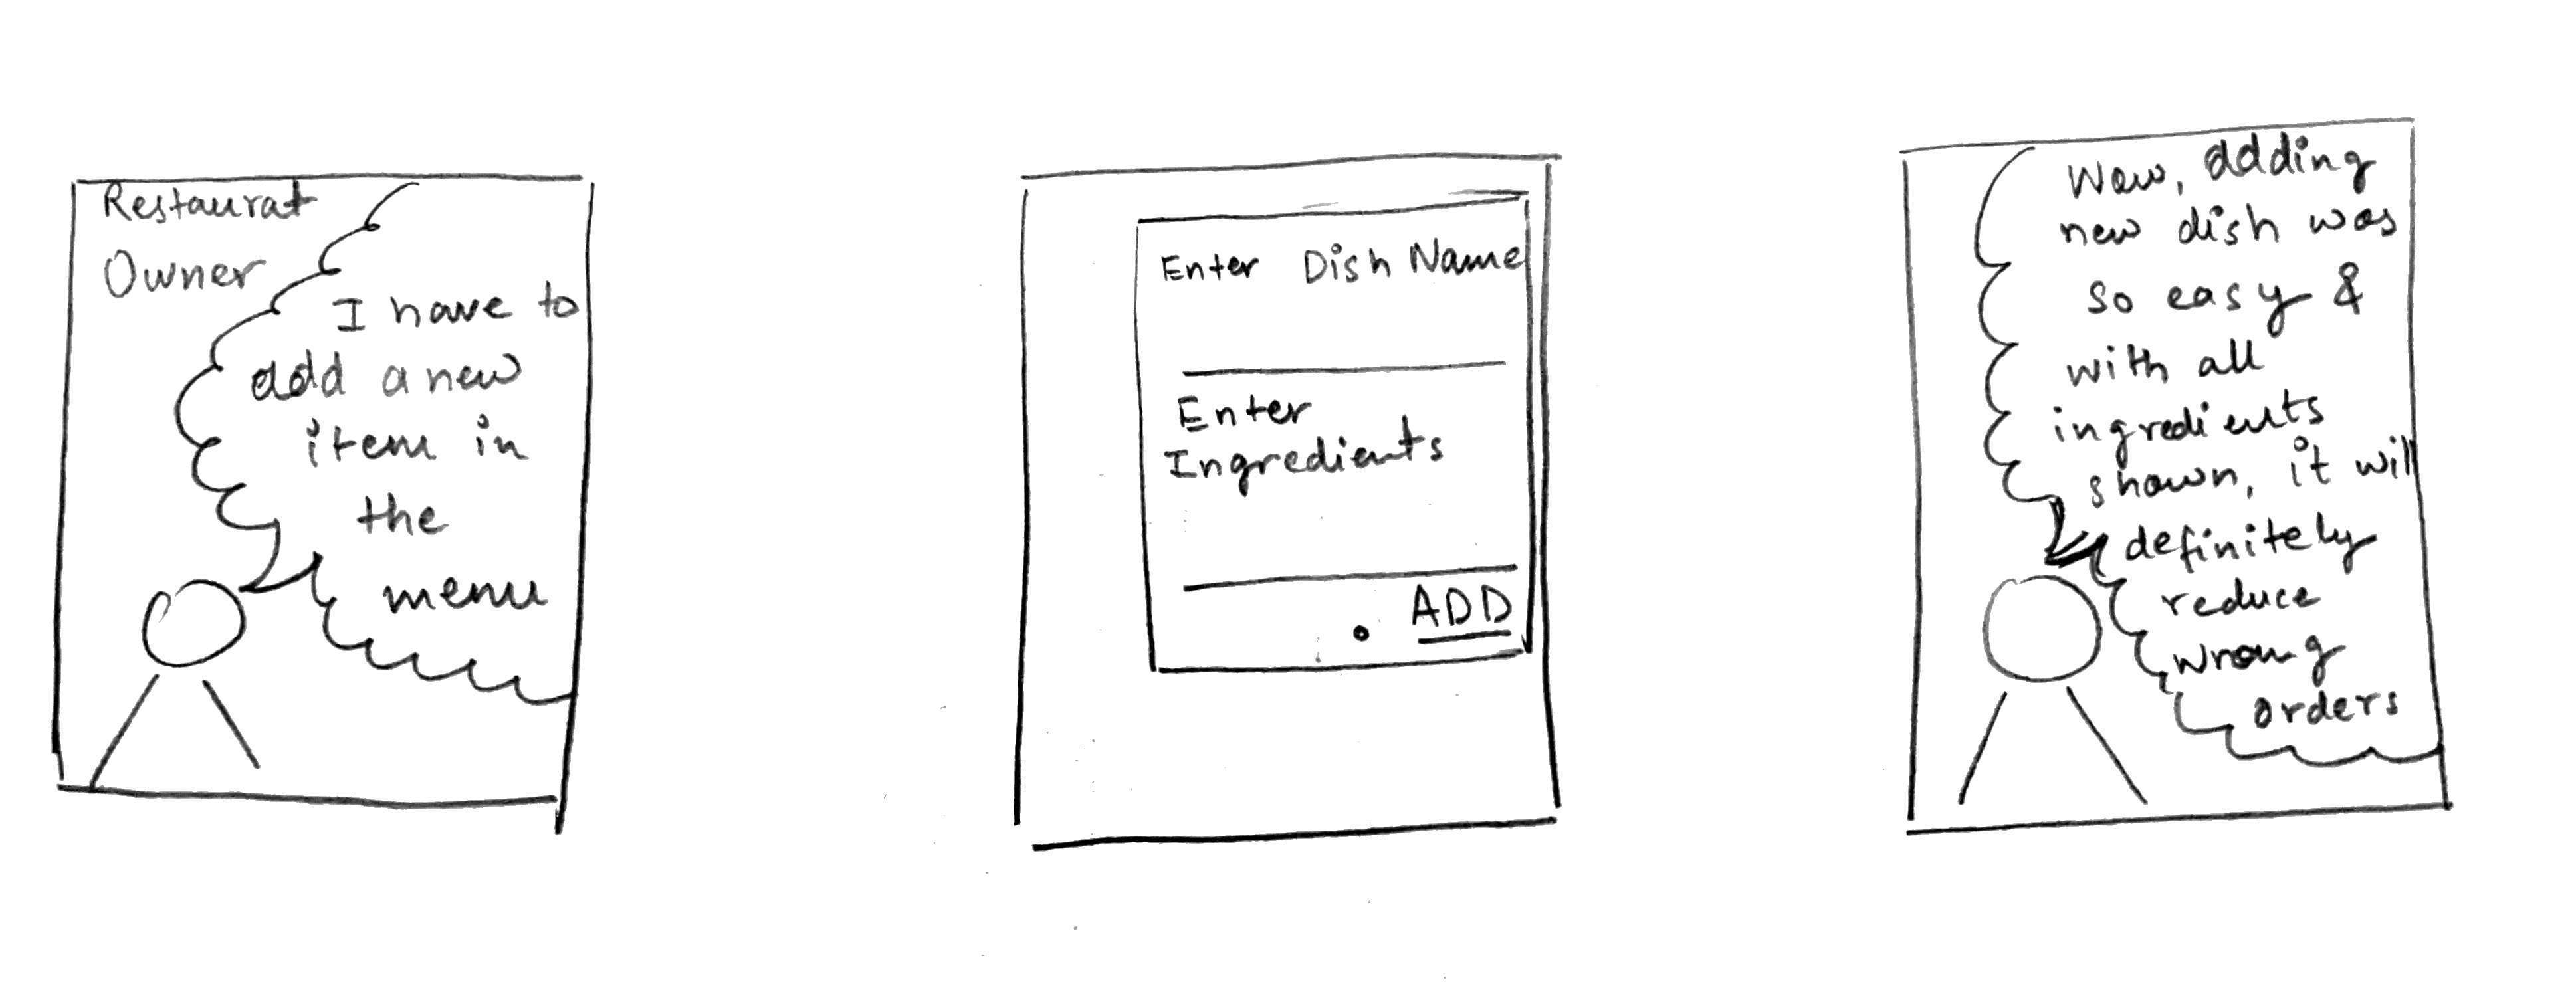 Restaurat
Owner
I have to
add a new
item in
the
menu
Enter Dish Name
Enter
Ingredients
ADD
Wow, adding
new dish was
so easy &
with all
ingredients
shown, it will
definitely
reduce
wrong
orders